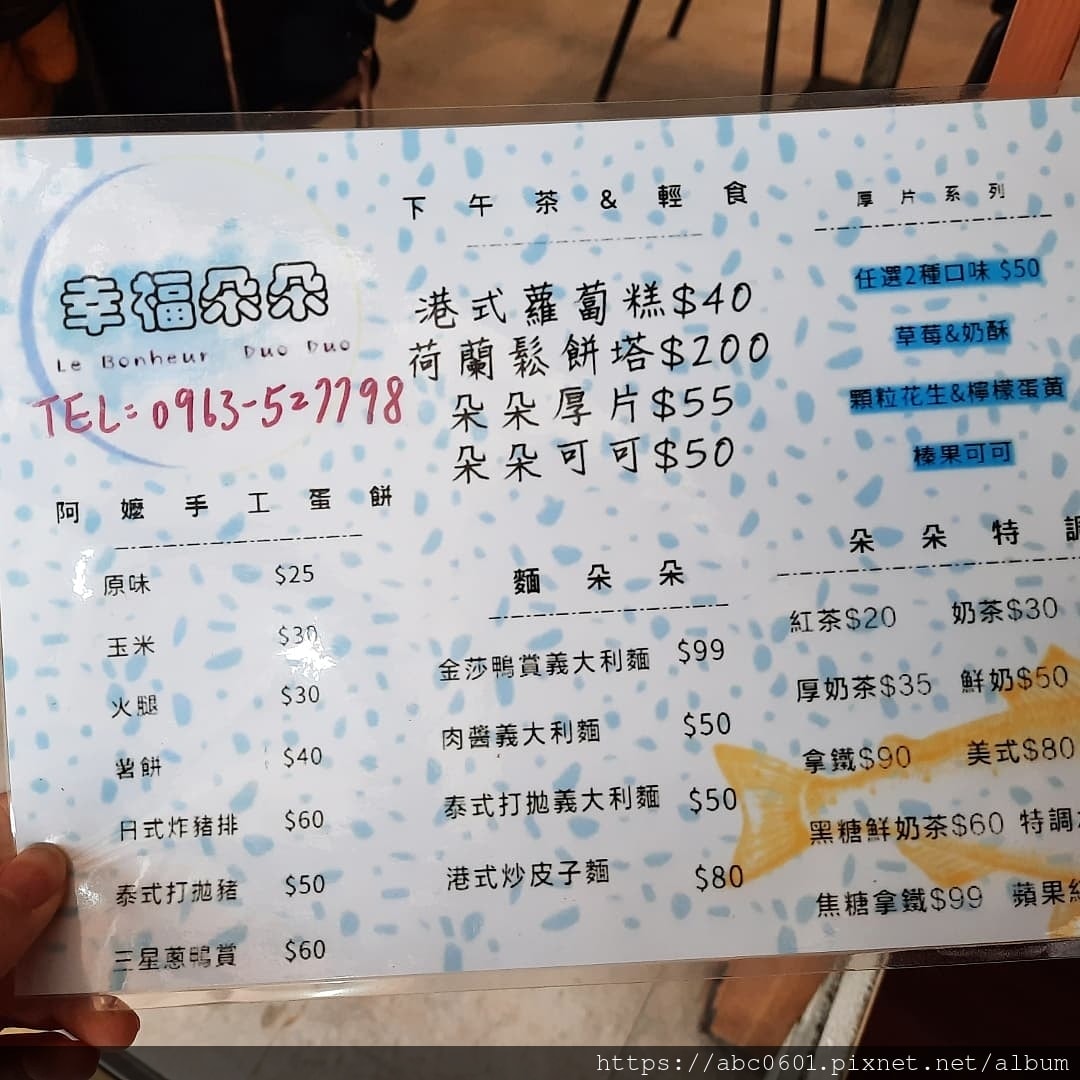 幸福朵朵
Le Bonheur Duo Duo
TEL: 0963-527798
阿嬤手工蛋餅
原味 $25
玉米 $30
火腿 $30
薯餅 $40
日式炸豬排 $60
泰式打拋豬 $50
三星蔥鴨賞 $60
下午茶&輕食
港式蘿蔔糕$40
荷蘭鬆餅塔$200
朵朵厚片$55
朵朵可可$50
麵朵朵
金莎鴨賞義大利麵 $99
肉醬義大利麵 $50
泰式打拋義大利麵 $50
港式炒皮子麵 $80
厚片系列
任選2種口味 $50
草莓&奶酥
顆粒花生&檸檬蛋黃
榛果可可
朵朵特調
紅茶$20 奶茶$30
厚奶茶$35 鮮奶$50
拿鐵$90 美式$80
黑糖鮮奶茶$60 特調
焦糖拿鐵$99 蘋果
https://abc0601.pixnet.net/album